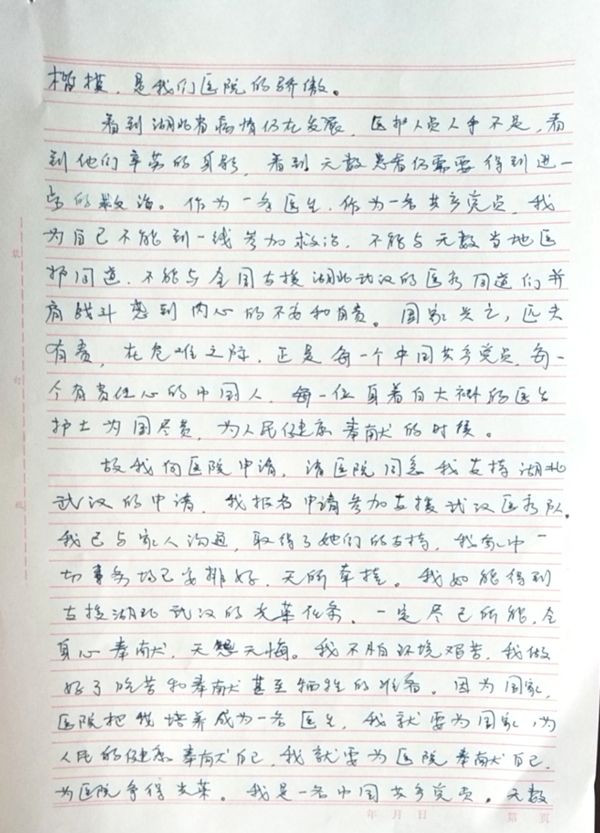 楷模，是我们医院的骄傲。
看到湖北省病情仍在发展，医护人员人手不足，看
到他们辛苦的身影，看到无数患者仍需要得到进一
步的救治。作为一名医生，作为一名共产党员，我
为自己不能到一线参加救治，不能与无数当地医
护同道，不能与全国支援湖北武汉的医务同道们并
肩战斗感到内心的不安和自责。国家兴亡，匹夫
有责，在危难之际，正是每一个中国共产党员，每一
个有责任心的中国人，每一位身着白大褂的医生
护士为国尽责，为人民健康奉献的时候。
故我向医院申请，请医院同意我支持湖北
武汉的申请，我报名申请参加支援武汉医疗队。
我已与家人沟通，取得了她们的支持，我家中一
切事务均已安排好，无所牵挂。我如能得到
支援湖北武汉的光荣任务，一定尽己所能，全
身心奉献，无怨无悔。我不怕环境艰苦，我做
好了吃苦和奉献甚至牺牲的准备。因为国家，
医院把我培养成为一名医生，我就要为国家，为
人民的健康奉献自己，我就要为医院奉献自己，
为医院争得光荣。我是一名中国共产党员。无数
年 月 日 第 页
装
订
线